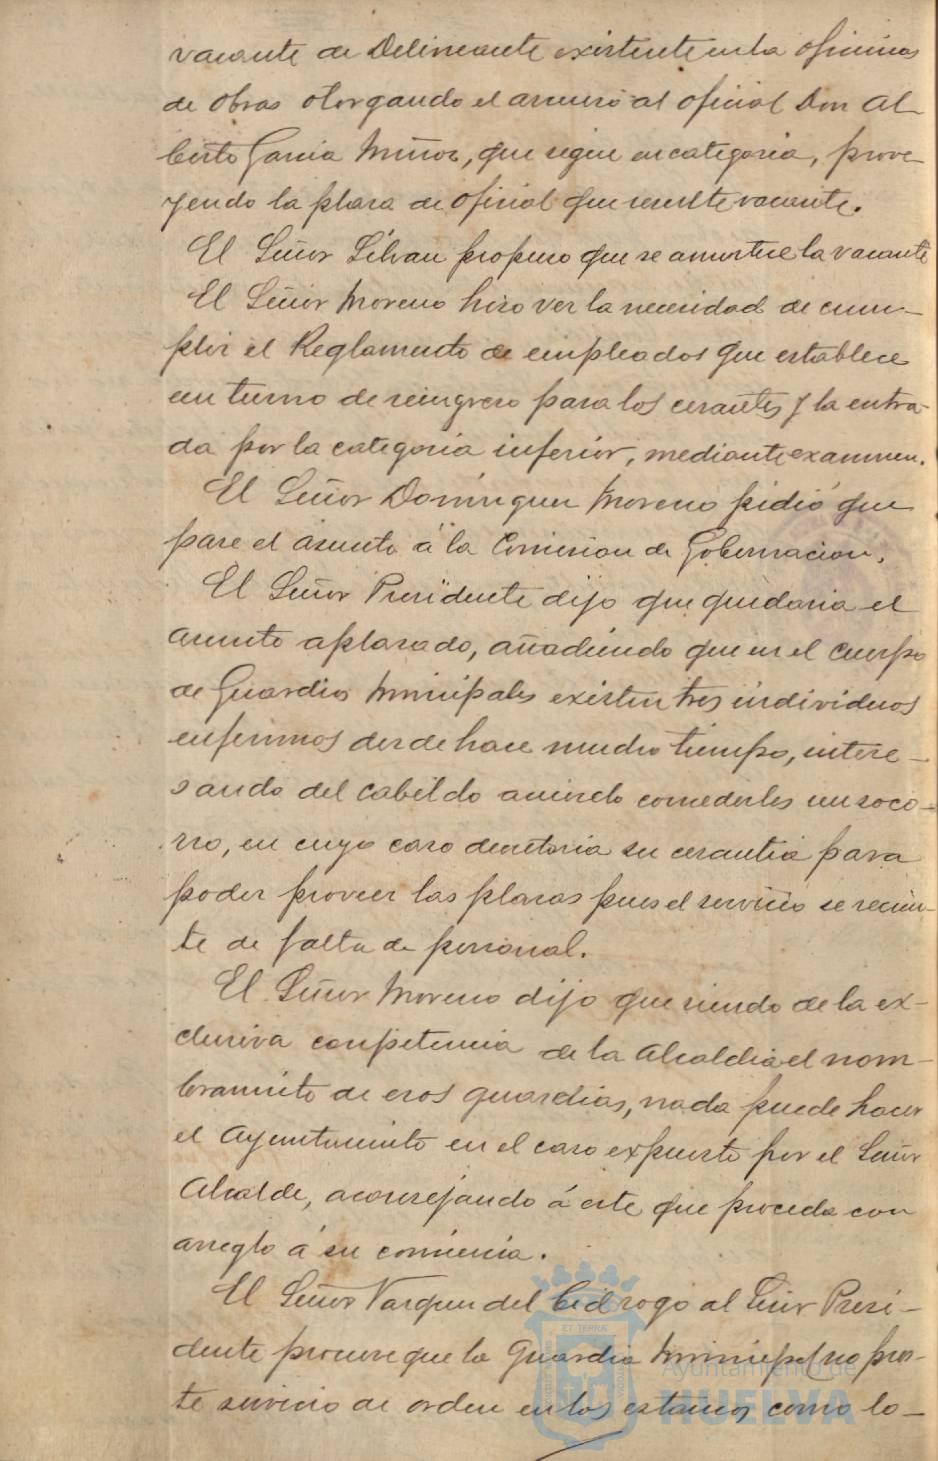 vacante de Delineante existente en la oficinas
de obras otorgando el ascenso al oficial Don Al-
berto Garcia Muñoz, que sigue en categoria, prove-
yendo la plaza de oficial que resulte vacante.
El Señor Silvan propuso que se amortice la vacante
El Señor Moreno hizo ver la necesidad de cum-
plir el Reglamento de empleados que establece
un turno de reingreso para los cesantes y la entra-
da por la categoria inferior, mediante examen.
El Señor Dominguez Moreno pidió que
pase el asunto á la Comision de Gobernacion.
El Señor Presidente dijo que quedaria el
asunto aplazado, añadiendo que en el Cuerpo
de Guardias Municipales existen tres individuos
enfermos desde hace mucho tiempo, intere-
sando del cabildo acuerde concederles un soco-
rro, en cuyo caso decretaria su cesantia para
poder proveer las plazas pues el servicio se resien-
te de falta de personal.
El Señor Moreno dijo que siendo de la ex-
clusiva competencia de la Alcaldia el nom-
bramiento de esos guardias, nada puede hacer
el Ayuntamiento en el caso expuesto por el Señor
Alcalde, aconsejando á este que proceda con
arreglo á su conciencia.
El Señor Vazquez del Cid rogo al Señor Presi-
dente procure que la Guardia Municipal no pres-
te servicio de orden en los estancos como lo-
ET TERRA
Ayuntamiento de
HUELVA